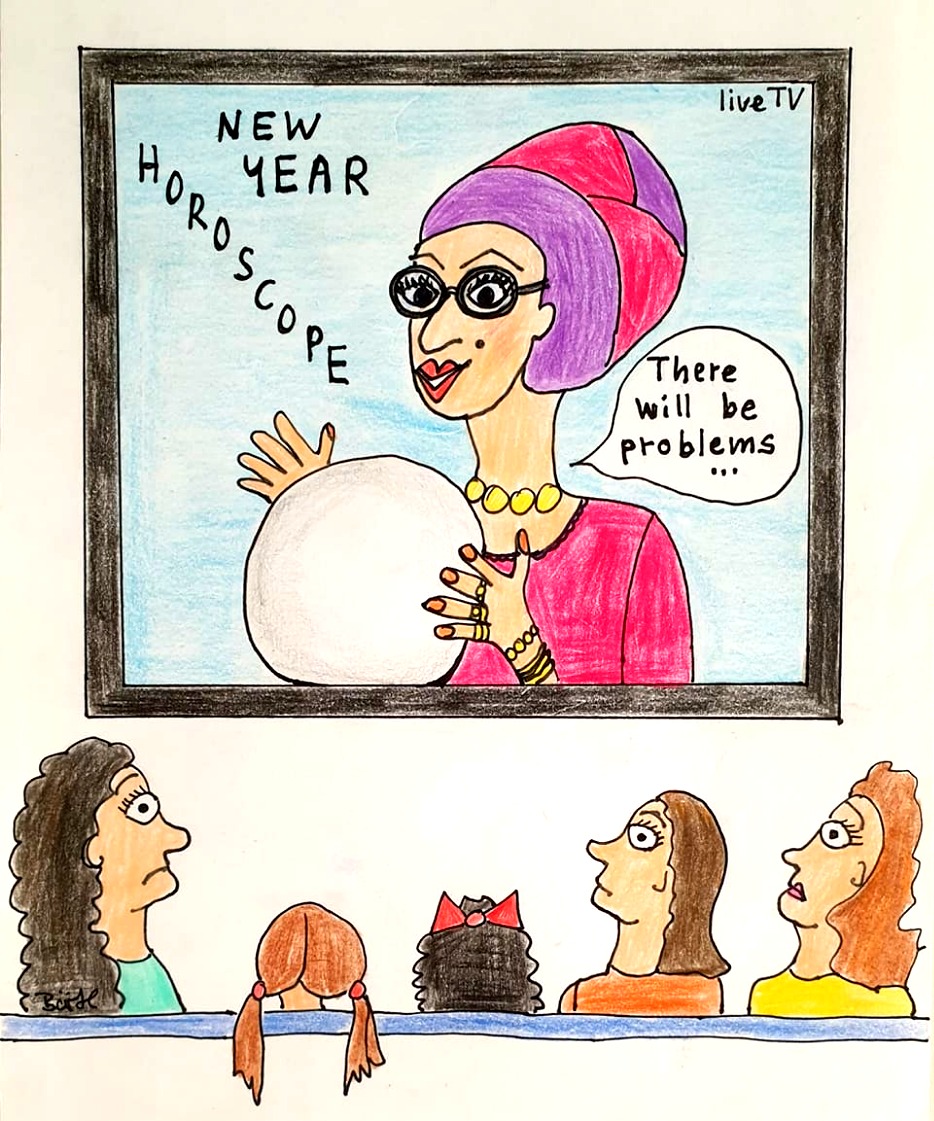 liveTV
NEW
YEAR
HOROSCOPE
There
will be
problems
...